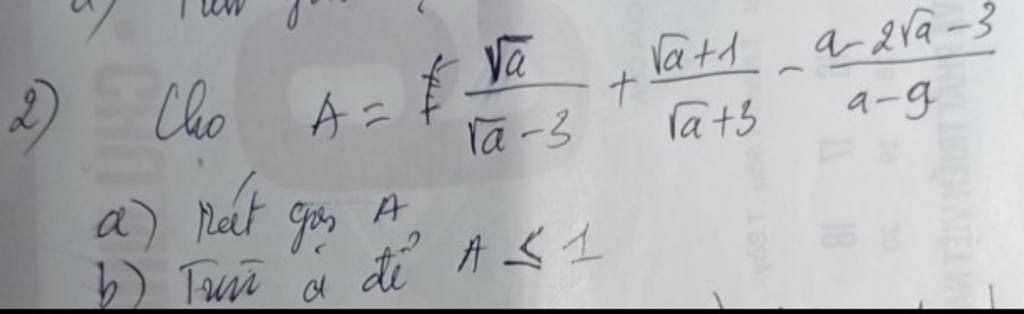 2) Cho A = \frac{\sqrt{a}}{\sqrt{a}-3} + \frac{\sqrt{a}+1}{\sqrt{a}+3} - \frac{a-2\sqrt{a}-3}{a-9}
a) Rút gọn A
b) Tìm a để A ≤ 1